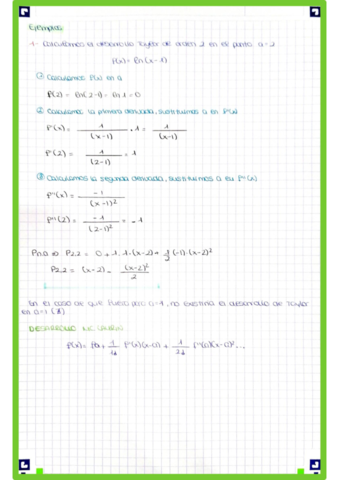 Ejemplos:
1- Calculamos el desarrollo Taylor de orden 2 en el punto a=2
f(x) = ln(x-1)
① Calculamos f(x) en a
f(2) = ln(2-1) = ln 1 = 0
② Calculamos la primera derivada, sustituimos a en f'(x)
f'(x) = 1/(x-1) · 1 = 1/(x-1)
f'(2) = 1/(2-1) = 1
③ Calculamos la segunda derivada, sustituimos a en f''(x)
f''(x) = -1/(x-1)²
f''(2) = -1/(2-1)² = -1
Pn,a ⇒ P2,2 = 0 + 1 · 1 · (x-2) + 1/2 (-1) · (x-2)²
P2,2 = (x-2) - (x-2)²/2
En el caso de que fuera para a=1, no existiría el desarrollo de Taylor
en a=1
DESARROLLO